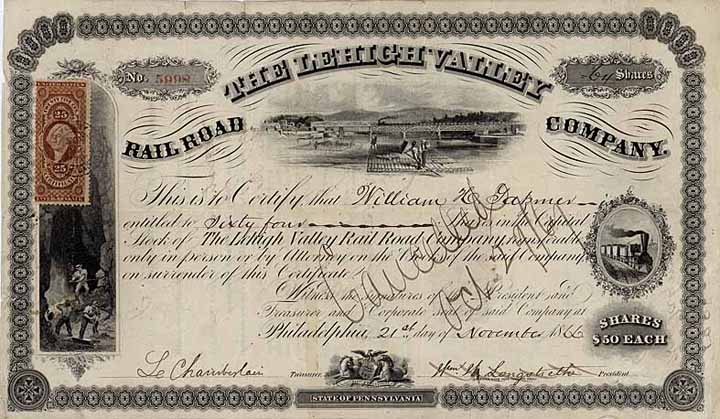 No. 5998
64 Shares
THE LEHIGH VALLEY
RAIL ROAD COMPANY.
25
25 25
This is to Certify that William H.
entitled to Sixty four Shares in the Capital
Stock of The Lehigh Valley Rail Road Company transferable
only in person or by Attorney on the Books of the said Company
on surrender of this Certificate.
Witness the Signatures of the President and
Treasurer and Corporate seal of said Company at
Philadelphia, 21st day of November 1866
Cancelled
SHARES
$50 EACH
L Chamberlain Treasurer Wm W Longstreth President
STATE OF PENNSYLVANIA